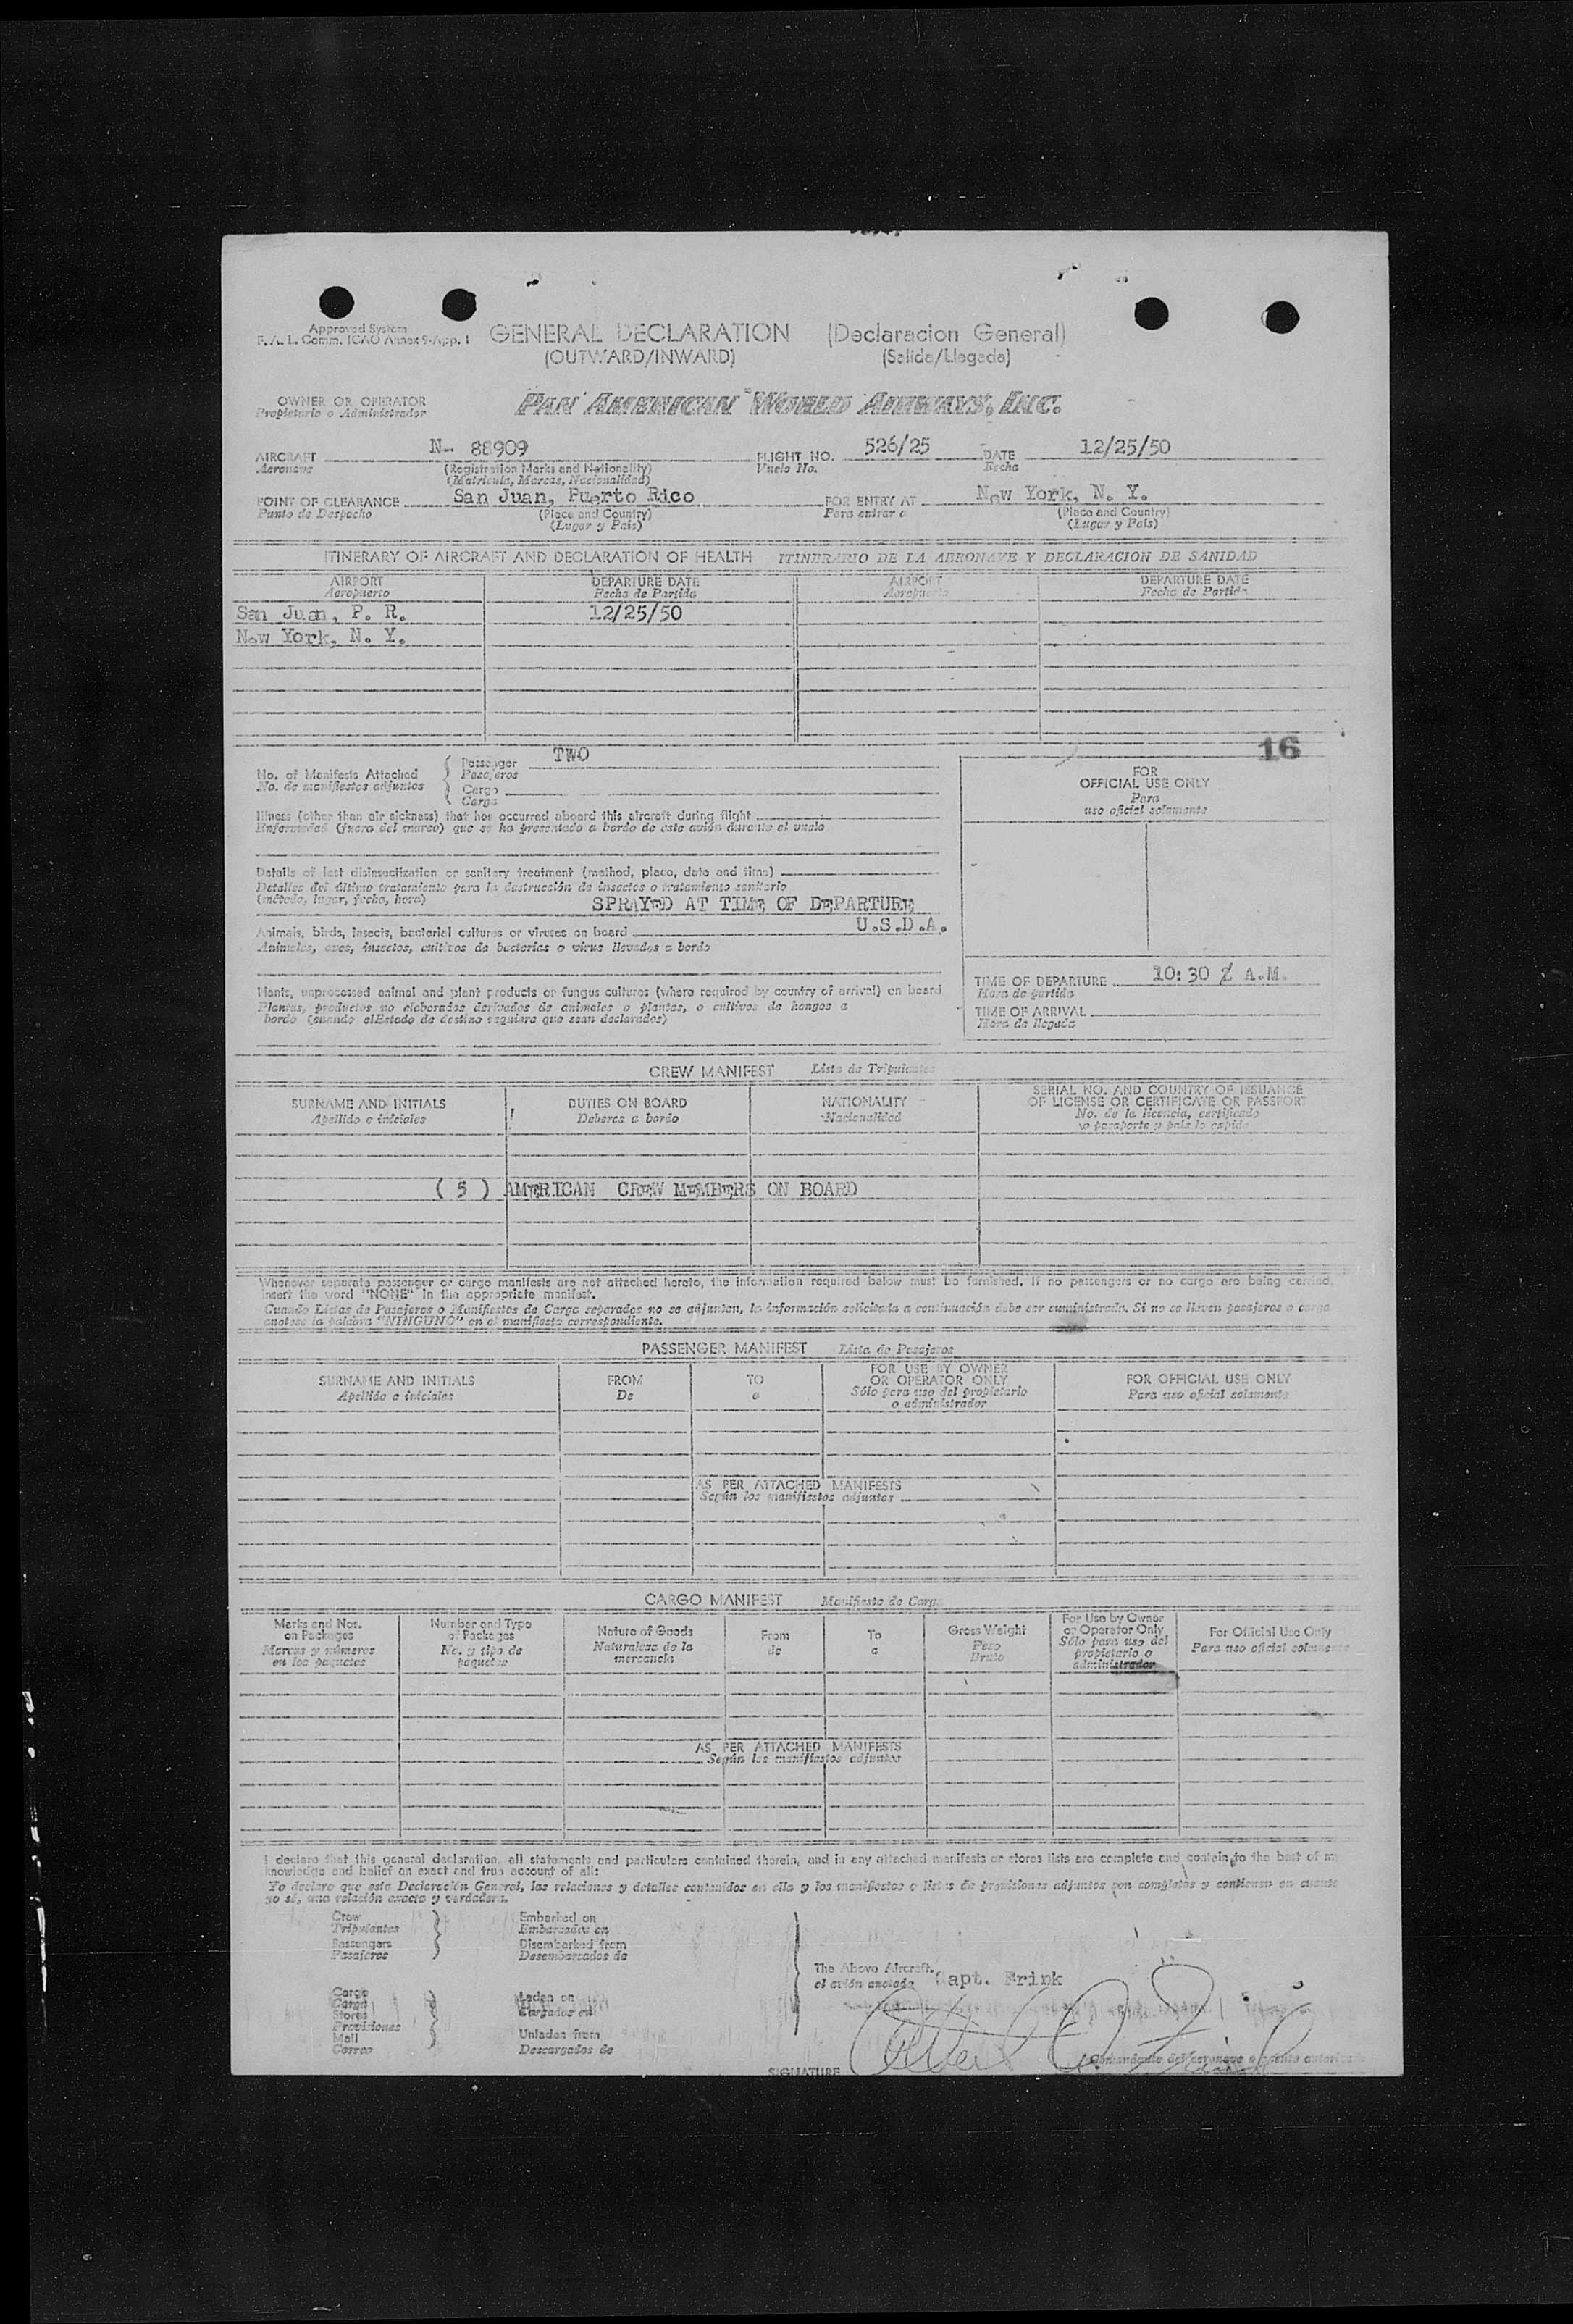 Approved System
F. A. L. Comm. ICAO Annex 9-App. 1
GENERAL DECLARATION (Declaracion General)
(OUTWARD/INWARD) (Salida/Llegada)
OWNER OR OPERATOR
Propietario o Administrador
PAN AMERICAN WORLD AIRWAYS, INC.
AIRCRAFT N- 88909 FLIGHT NO. 526/25 DATE 12/25/50
Aeronave (Registration Marks and Nationality) Vuelo No. Fecha
(Matricula, Marcas, Nacionalidad)
POINT OF CLEARANCE San Juan, Puerto Rico FOR ENTRY AT New York, N. Y.
Punto de Despacho (Place and Country) Para entrar a (Place and Country)
(Lugar y País) (Lugar y País)
ITINERARY OF AIRCRAFT AND DECLARATION OF HEALTH ITINERARIO DE LA AERONAVE Y DECLARACION DE SANIDAD
AIRPORT DEPARTURE DATE AIRPORT DEPARTURE DATE
Aeropuerto Fecha de Partida Aeropuerto Fecha de Partida
San Juan, P. R. 12/25/50
New York, N. Y.
16
No. of Manifests Attached
No. de manifiestos adjuntos
Passenger TWO
Pasajeros
Cargo
Carga
Illness (other than air sickness) that has occurred aboard this aircraft during flight
Enfermedad (fuera del mareo) que se ha presentado a bordo de este avión durante el vuelo
Details of last disinsectization or sanitary treatment (method, place, date and time)
Detalles del último tratamiento para la destrucción de insectos o tratamiento sanitario
(método, lugar, fecha, hora) SPRAYED AT TIME OF DEPARTURE
Animals, birds, insects, bacterial cultures or viruses on board U.S.D.A.
Animales, aves, insectos, cultivos de bacterias o virus llevados a bordo
Plants, unprocessed animal and plant products or fungus cultures (where required by country of arrival) on board
Plantas, productos no elaborados derivados de animales o plantas, o cultivos de hongos a
bordo (cuando elEstado de destino requiere que sean declarados)
FOR
OFFICIAL USE ONLY
Para
uso oficial solamente
TIME OF DEPARTURE 10:30 A.M.
Hora de partida
TIME OF ARRIVAL
Hora de llegada
CREW MANIFEST Lista de Tripulantes
SURNAME AND INITIALS DUTIES ON BOARD NATIONALITY SERIAL NO. AND COUNTRY OF ISSUANCE
OF LICENSE OR CERTIFICATE OR PASSPORT
Apellido e iniciales Deberes a bordo Nacionalidad No. de la licencia, certificado
o pasaporte y país lo expide
( 5 ) AMERICAN CREW MEMBERS ON BOARD
Whenever separate passenger or cargo manifests are not attached hereto, the information required below must be furnished. If no passengers or no cargo are being carried,
insert the word "NONE" in the appropriate manifest.
Cuando Listas de Pasajeros o Manifiestos de Carga separados no se adjuntan, la información solicitada a continuación debe ser suministrada. Si no se llevan pasajeros o carga
anotese la palabra "NINGUNO" en el manifiesto correspondiente.
PASSENGER MANIFEST Lista de Pasajeros
SURNAME AND INITIALS FROM TO FOR USE BY OWNER OR OPERATOR ONLY FOR OFFICIAL USE ONLY
Apellido e iniciales De a Sólo para uso del propietario o administrador Para uso oficial solamente
AS PER ATTACHED MANIFESTS
Según los manifiestos adjuntos
CARGO MANIFEST Manifiesto de Carga
Marks and Nos. on Packages Number and Type of Packages Nature of Goods From To Gross Weight For Use by Owner or Operator Only For Official Use Only
Marcas y números en los paquetes No. y tipo de paquetes Naturaleza de la mercancía de a Peso Bruto Sólo para uso del propietario o administrador Para uso oficial solamente
AS PER ATTACHED MANIFESTS
Según los manifiestos adjuntos
I declare that this general declaration, all statements and particulars contained therein, and in any attached manifests or stores lists are complete and contain to the best of my
knowledge and belief an exact and true account of all:
Yo declaro que esta Declaración General, las relaciones y detalles contenidos en ella y los manifiestos o listas de provisiones adjuntos son completos y contienen en cuanto
yo sé, una relación exacta y verdadera.
Crew Embarked on
Tripulantes Embarcados en
Passengers Disembarked from
Pasajeros Desembarcados de
Cargo Laden on
Carga Cargados en
Stores
Provisiones
Mail Unladen from
Correo Descargados de
The Above Aircraft.
el avión anotado Capt. Frink
SIGNATURE
Comandante de aeronave o agente autorizado